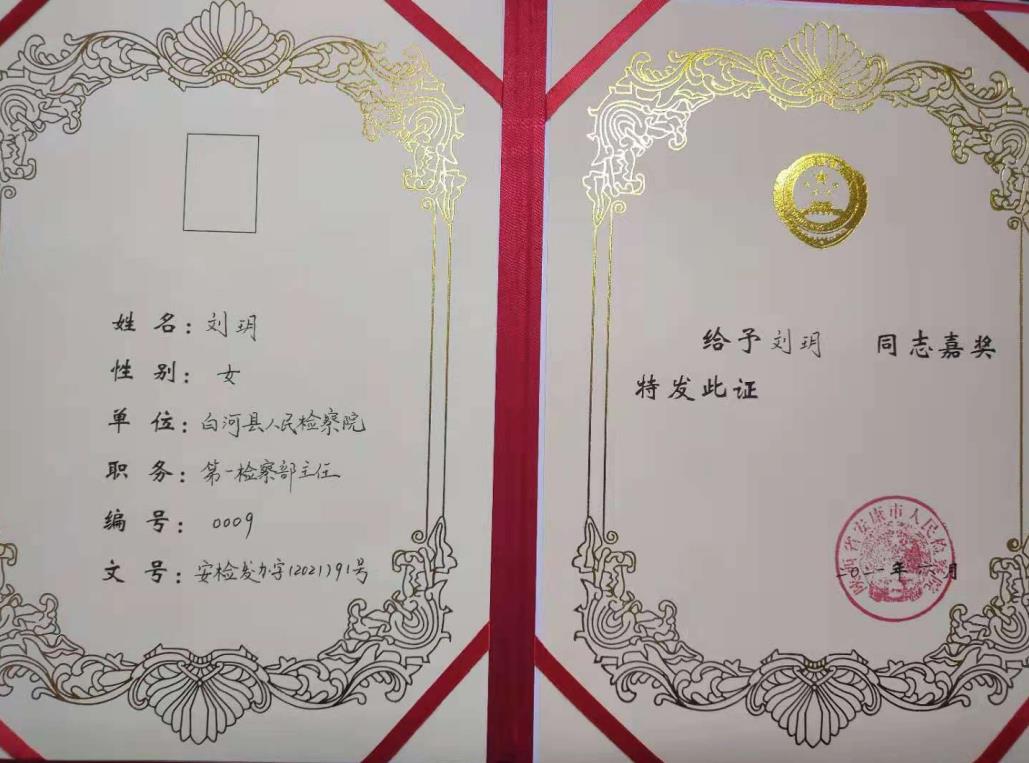 姓 名：刘玥
性 别：女
单 位：白河县人民检察院
职 务：第一检察部主任
编 号：0009
文 号：安检发办字(2021)91号
给予刘玥 同志嘉奖
特发此证
陕西省安康市人民检察院